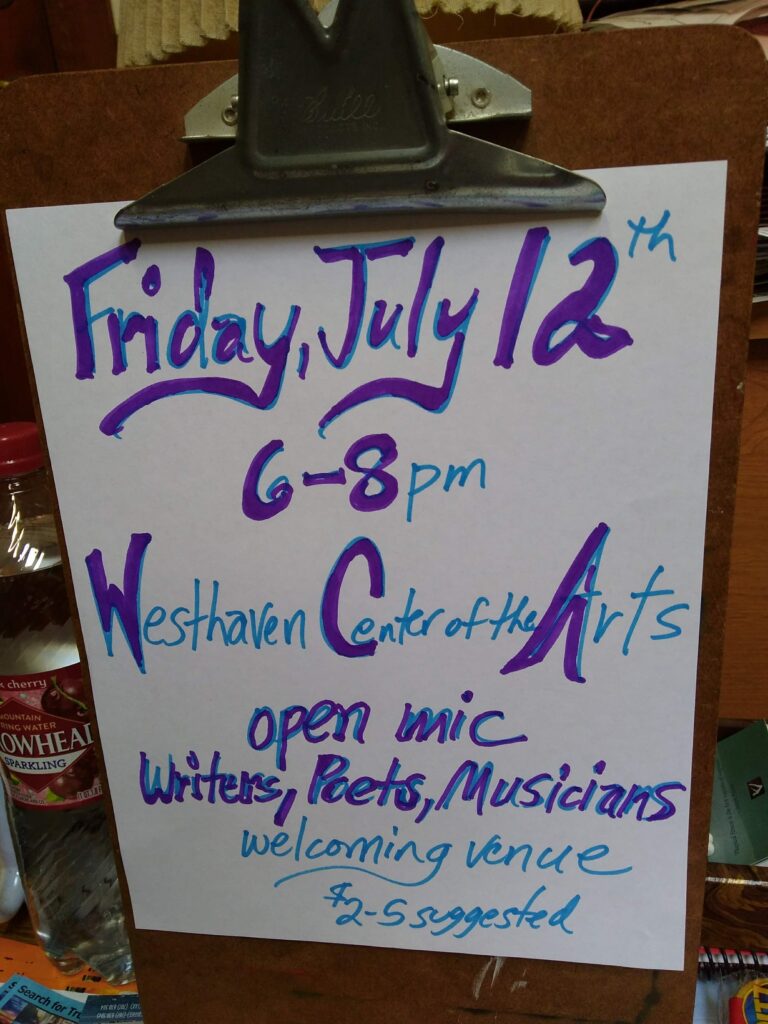 Friday, July 12th
6-8pm
Westhaven Center of the Arts
open mic
Writers, Poets, Musicians
welcoming venue
$2-5 suggested
cherry
MOUNTAIN
RING WATER
ROWHEAD
SPARKLING
Search for Tr